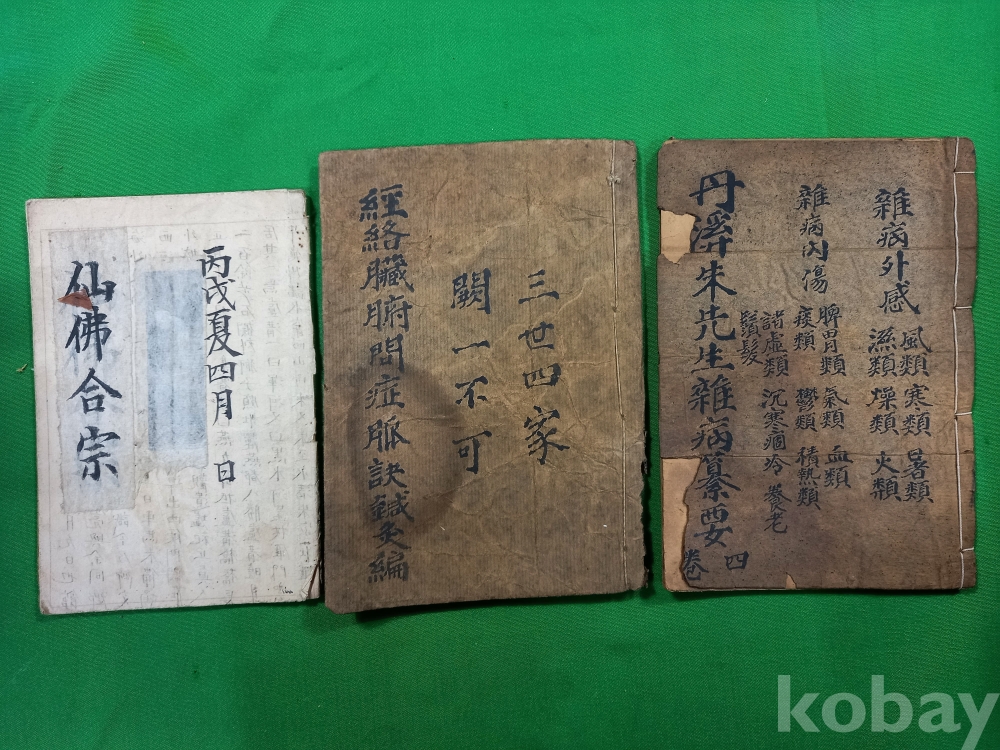 丙戌夏四月 日
仙佛合宗
三世四家
闕一不可
經絡臟腑問症脈訣鍼灸編
雜病外感
風類 寒類 暑類
濕類 燥類 火類
雜病內傷
脾胃類 氣類 血類
痰類 鬱類 積熱類
諸虛類 沉寒痼冷 養老
鬚髮
丹溪朱先生雜病纂要
卷四
kobay